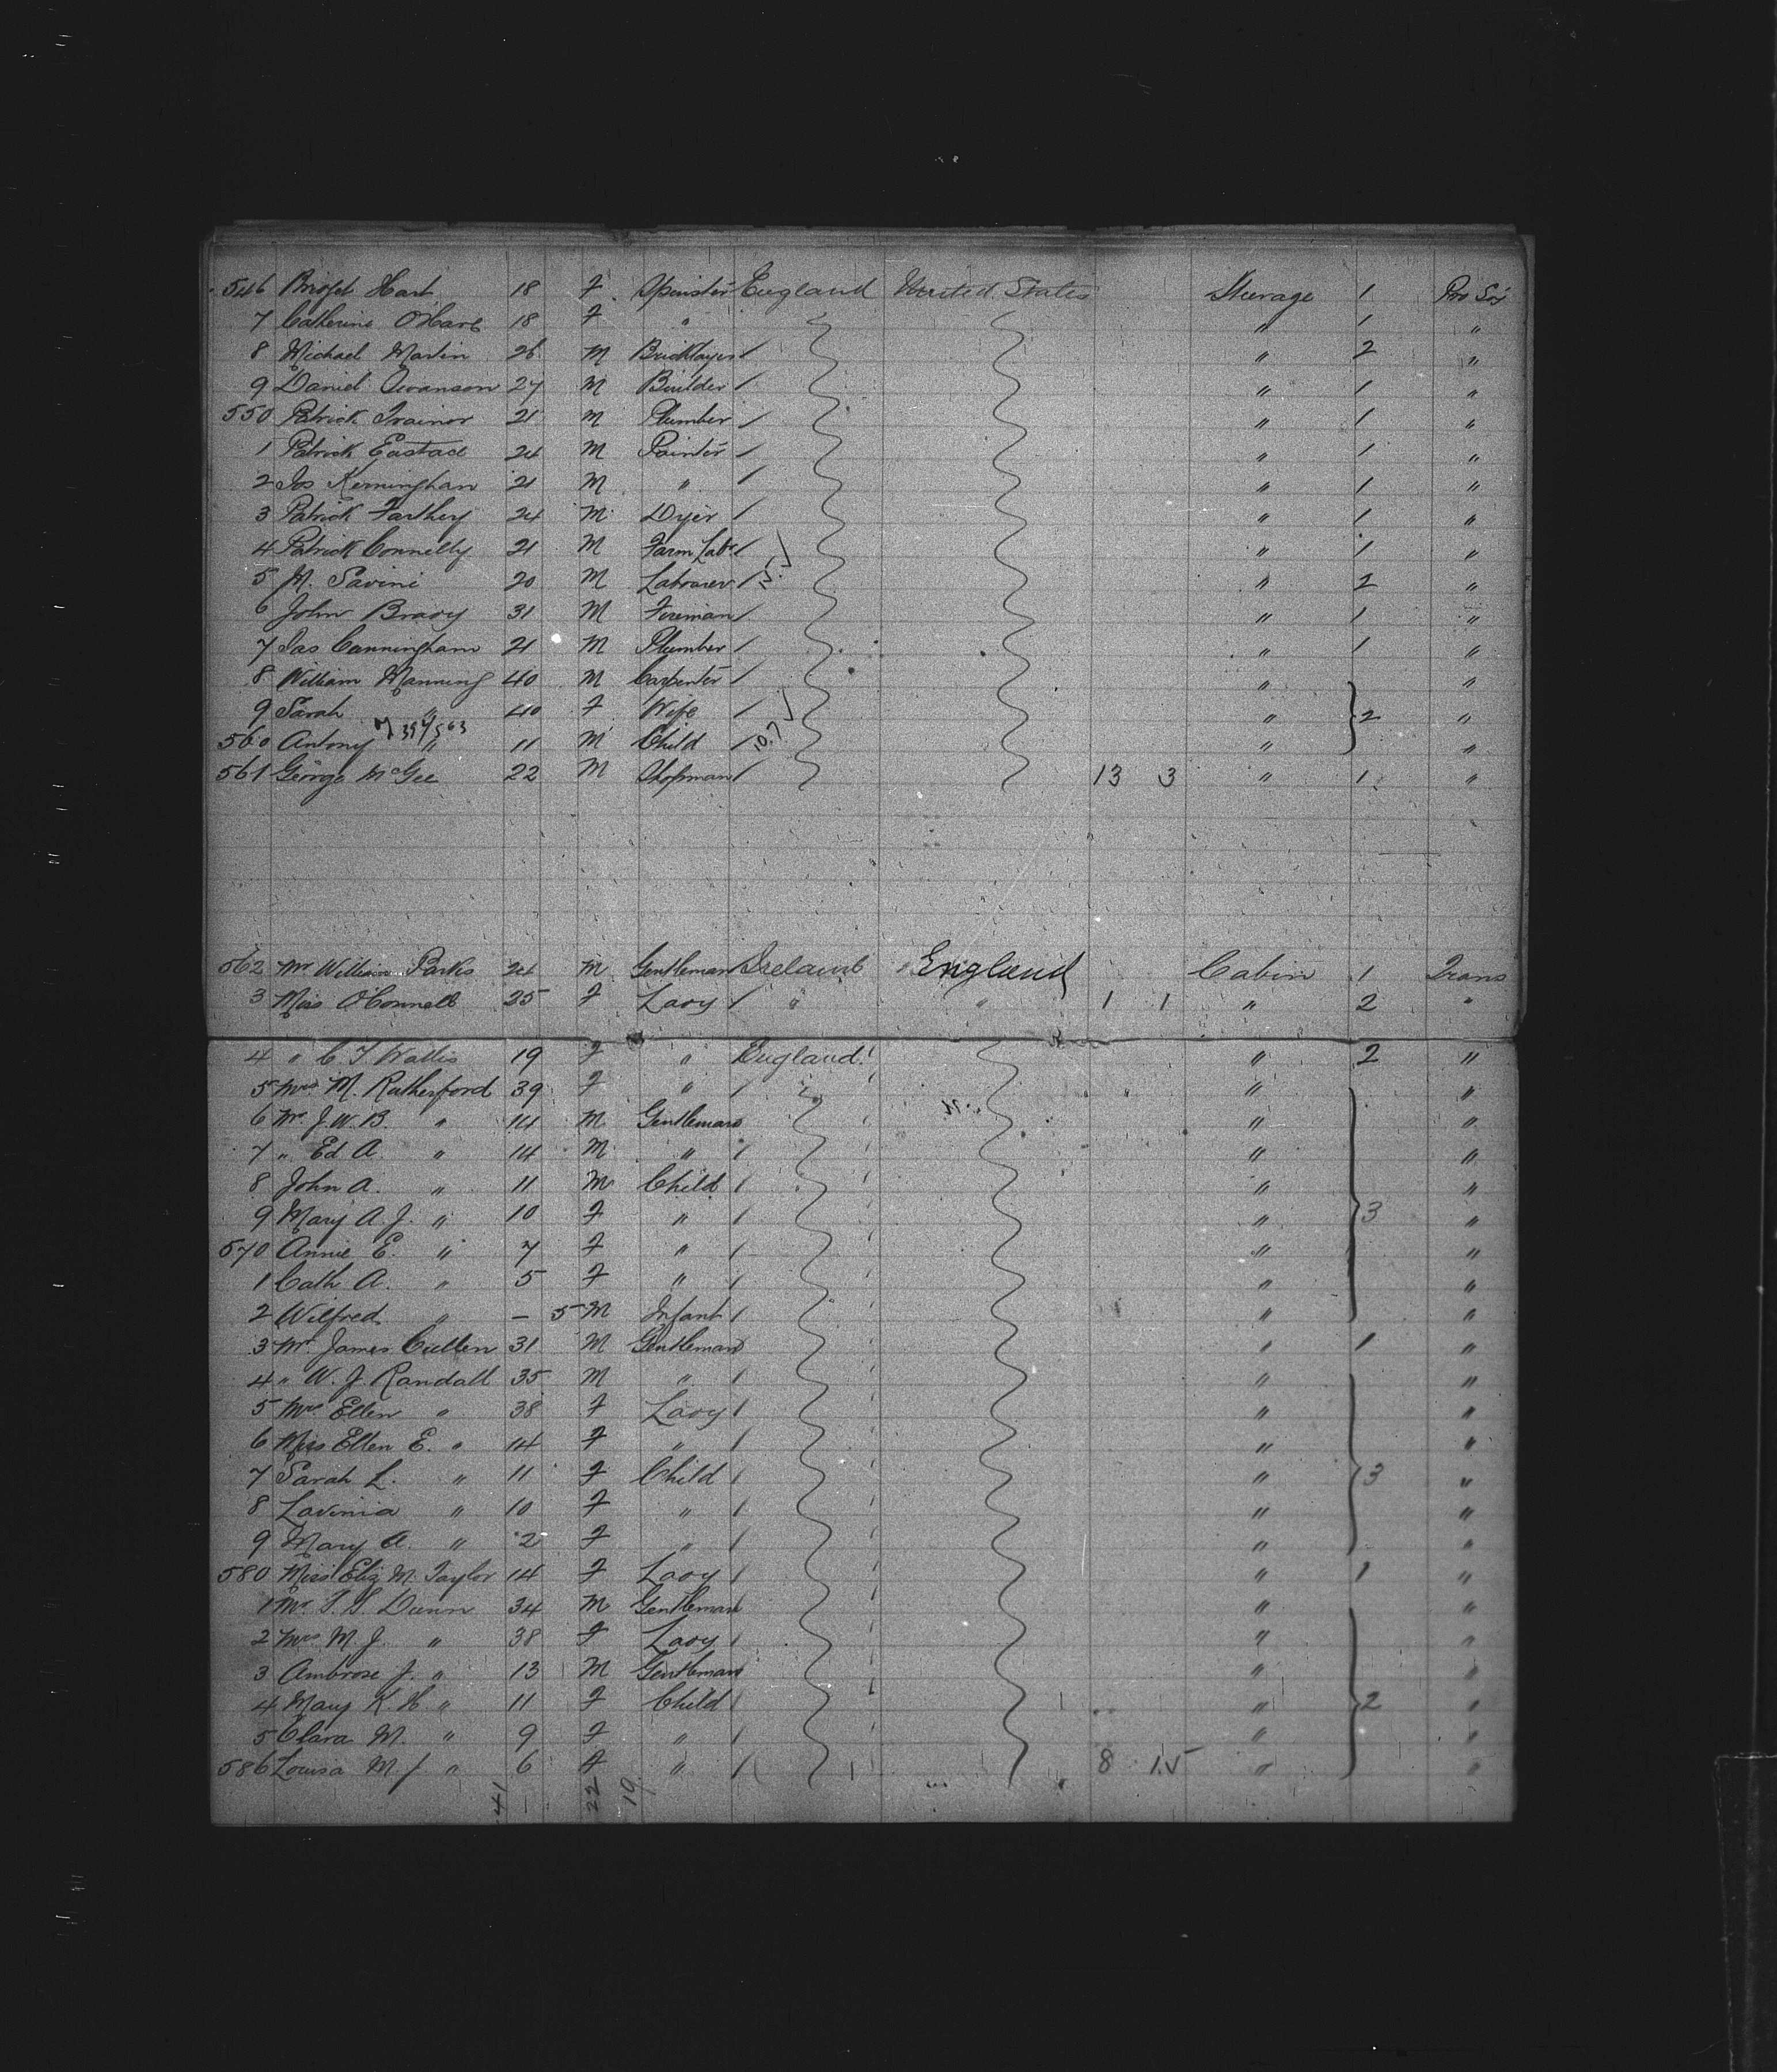 546 Bridget Hart 18 F Spinster England United States Steerage 1 Pro Soj
7 Catherine O'Hare 18 F " " 1 "
8 Michael Martin 26 M Bricklayer / " 2 "
9 Daniel Swanson 27 M Builder / " 1 "
550 Patrick Trainor 21 M Plumber / " 1 "
1 Patrick Eastace 24 M Painter / " 1 "
2 Jos Kerninghan 21 M " / " 1 "
3 Patrick Farthey 24 M Dyer / " 1 "
4 Patrick Connelly 21 M Farm Labr / " 1 "
5 M. Savini 20 M Labourer / " 2 "
6 John Brady 31 M Fireman / " 1 "
7 Jas Cunningham 21 M Plumber / " 1 "
8 William Manning 40 M Carpenter / " "
9 Sarah " 40 F Wife / " 2 "
560 Antony " 11 M Child / " "
561 George McGee 22 M Shopman / 13 3 " 1 "
562 Mr William Parks 24 M Gentleman Ireland England Cabin 1 Trans
3 Miss O'Connell 25 F Lady / " " 1 1 " 2 "
4 " C F Wallis 19 F " England " 2 "
5 Mrs M. Rutherford 39 F " / " "
6 Mr J. W. B. " 14 M Gentleman " "
7 " Ed A. " 14 M " / " "
8 John A. " 11 M Child / " "
9 Mary A. J. " 10 F " / " 3 "
570 Annie E. " 7 F " / " "
1 Cath A. " 5 F " / " "
2 Wilfred " – 5 M Infant / " "
3 Mr James Cullen 31 M Gentleman " 1 "
4 " W. J. Randall 35 M " / " "
5 Mrs Ellen " 38 F Lady / " "
6 Miss Ellen E. " 14 F " / " "
7 Sarah L. " 11 F Child / " 3 "
8 Lavinia " 10 F " / " "
9 Mary A. " 2 F " / " "
580 Miss Eliz M. Taylor 14 F Lady / " 1 "
1 Mr T. S. Dunn 34 M Gentleman " "
2 Mrs M J. " 38 F Lady / " "
3 Ambrose J. " 13 M Gentleman " "
4 Mary K. H. " 11 F Child / " 2 "
5 Clara M. " 9 F " / " "
586 Louisa M J " 6 F " / 8 15 " "
41 22 19